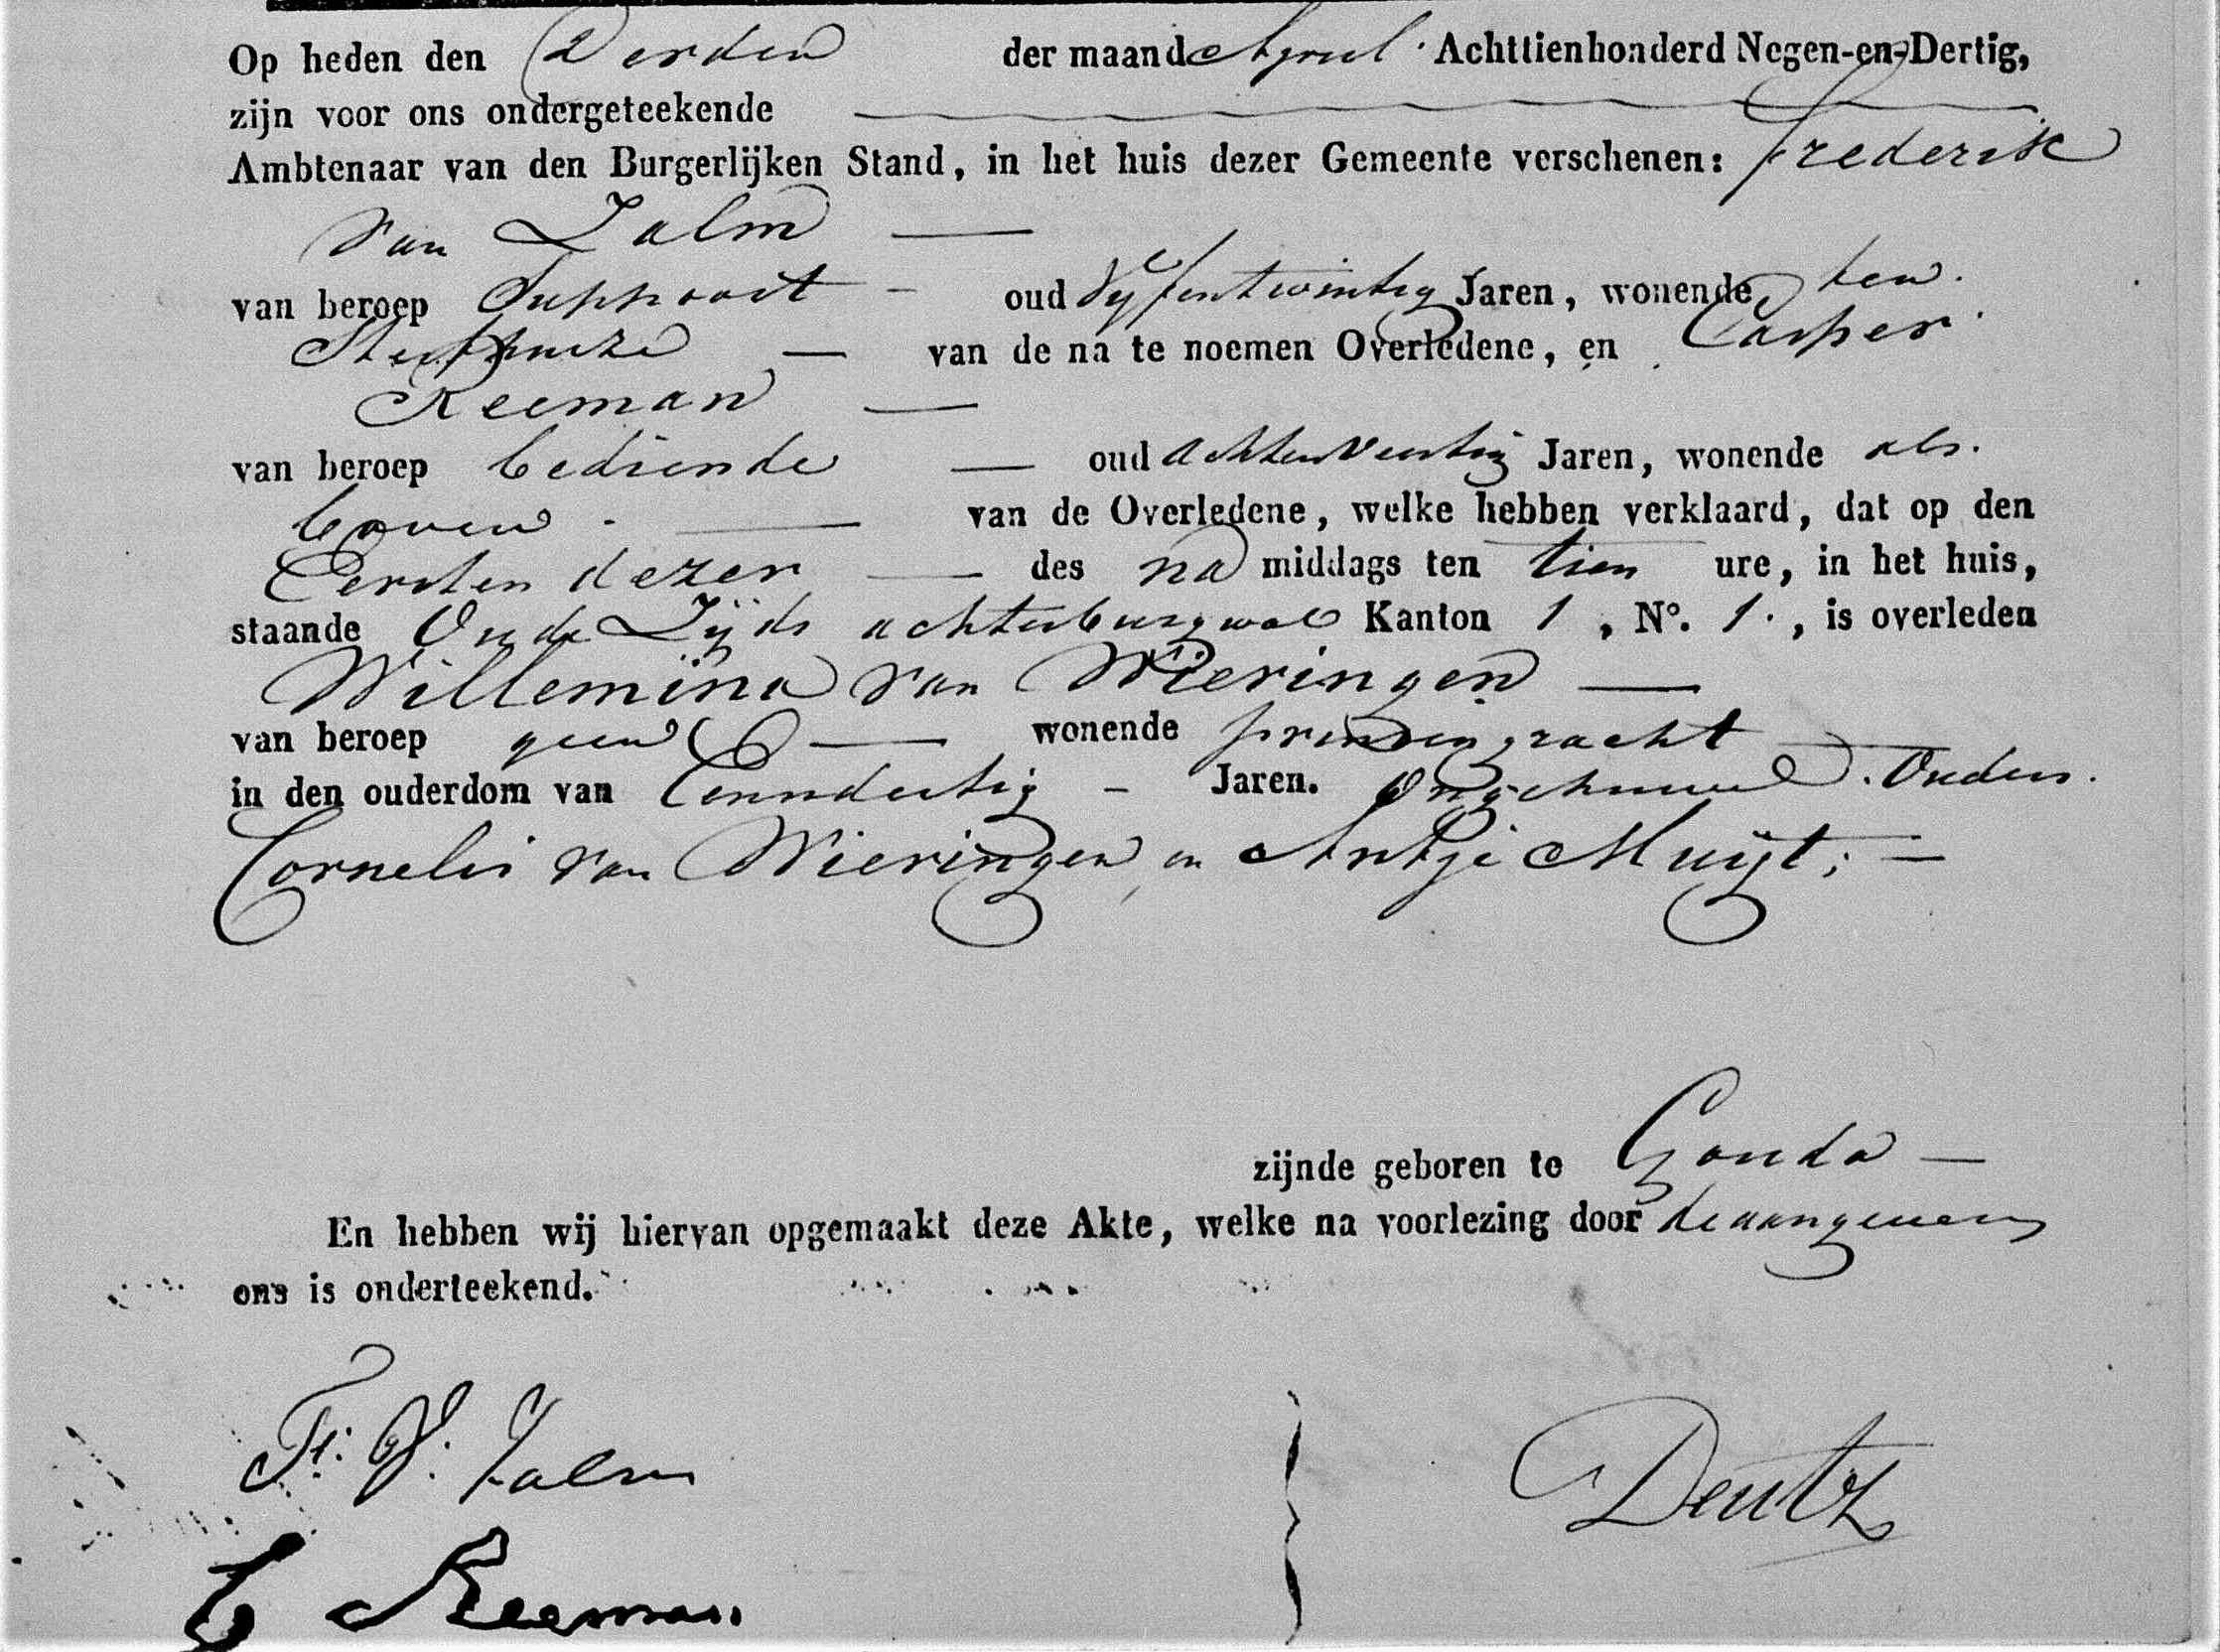 Op heden den Derden der maand April Achttienhonderd Negen-en-Dertig,
zijn voor ons ondergeteekende
Ambtenaar van den Burgerlijken Stand, in het huis dezer Gemeente verschenen: Frederik
van Zalm
van beroep Suppoost oud Vijfentwintig Jaren, wonende ten
Sterfhuize van de na te noemen Overledene, en Casper
Reeman
van beroep bediende oud achtenveertig Jaren, wonende als
boven van de Overledene, welke hebben verklaard, dat op den
Eersten dezer des na middags ten tien ure, in het huis,
staande Oude Zijds achterburgwal Kanton 1, No. 1., is overleden
Willemina van Wieringen
van beroep geen wonende prinsengracht
in den ouderdom van Eenendertig Jaren. Ongehuwd. Ouders.
Cornelis van Wieringen en Antje Muijt;
zijnde geboren te Gouda
En hebben wij hiervan opgemaakt deze Akte, welke na voorlezing door de aangevers
ons is onderteekend.
Fr: V: Zalm
Deutz
C Reeman